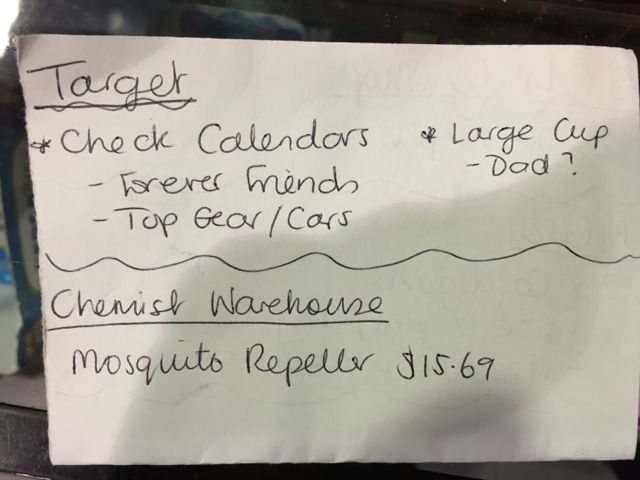 Target
* Check Calendars
- Forever Friends
- Top Gear/Cars
* Large Cup
- Dad?
Chemist Warehouse
Mosquito Repeller $15.69